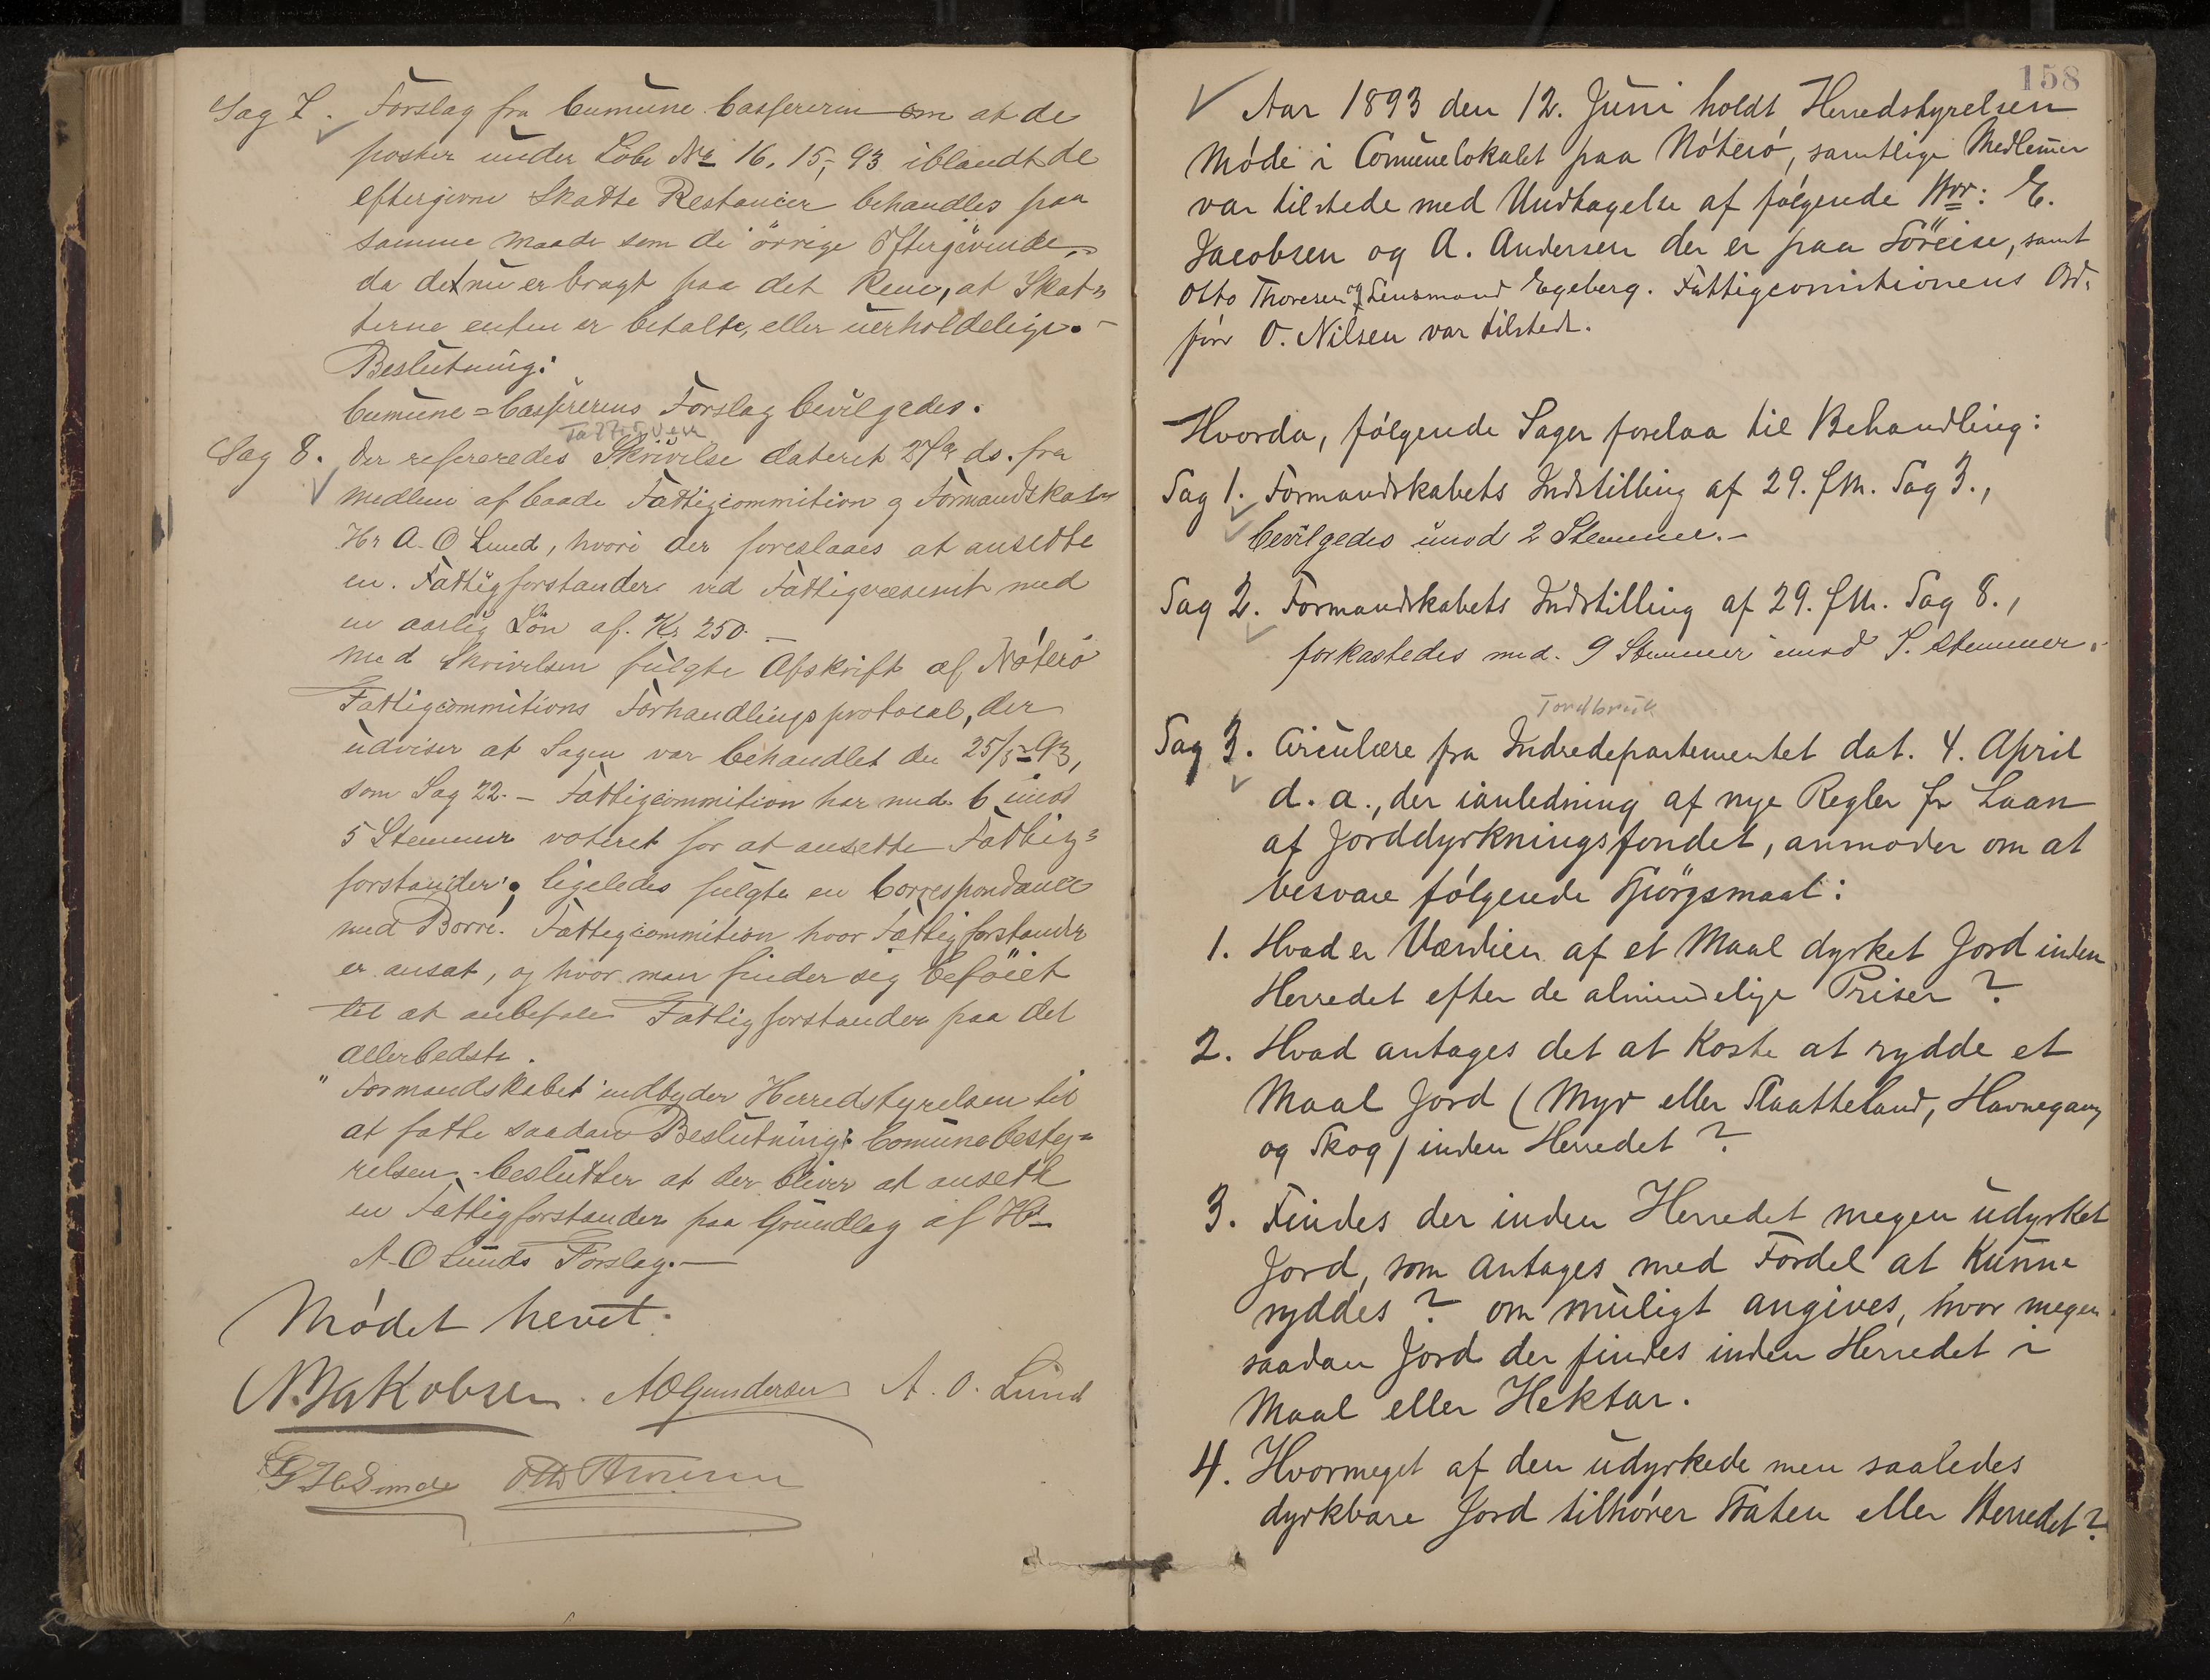 Sag 7. Forslag fra Cumune Casserern om at de
poster under Løbe No 16. 15, 93 iblandt de
eftergivne Skatte Restancer behandles paa
samme Maade som de øvrige Eftergivende,
da det nu er bragt paa det Rene, at Skat=
terne enten er betalte, eller uerholdelige. -
Beslutning:
Cumune=Casserens Forslag bevilgedes.
Fattigven
Sag 8. Der refereredes Skrivelse dateret 27de ds. fra
medlem af baade Fattigcommition og Formandskab
Hr A. O Lund, hvori der foreslaaes at ansette
en Fattigforstander ved Fattigvæsenet med
en aarlig Løn af. Kr 250. -
Med Skrivelsen fulgte Afskrift af Nøterø
Fattigcommitions Forhandlingsprotocol, der
udviser at Sagen var behandlet den 25/5-93,
som Sag 22. - Fattigcommition har med 6 imod
5 Stemmer voteret for at ansette Fattig=
forstander; ligeledes fulgte en Correspondance
med Borre. Fattigcommition hvor Fattigforstander
er ansat, og hvor man finder sig beføiet
til at anbefale Fattigforstander paa det
allerbedste.
"Formandskabet indbyder Herredstyrelsen til
at fatte saadan Beslutning: Comunebesty=
relsen beslutter at der bliver at ansette
en Fattigforstander paa Grundlag af Hr
A. O Lunds Forslag. -
Mødet hevet.
N. Jakobsen. A O Gundersen A. O. Lund
Otto Thoresen
158
Aar 1893 den 12. Juni holdt Herredstyrelsen
Møde i Comunelokalet paa Nøterø, samtlige Medlemer
var tilstede med Undtagelse af følgende Hrr: E.
Jacobsen og A. Andersen der er paa Søreise, samt
Otto Thoresen og Lensmand Egeberg. Fattigcomitionens Ord.
fører O. Nilsen var tilstede.
Hvorda, følgende Sager forelaa til Behandling:
Sag 1. Formandskabets Indstilling af 29. f.M. Sag 3.,
bevilgedes imod 2 Stemmer. -
Sag 2. Formandskabets Indstilling af 29. f.M. Sag 8.,
forkastedes med 9 Stemmer imod 7. Stemmer.
Jordbruk
Sag 3. Circulære fra Indredepartementet dat. 4. April
d. a., der ianledning af nye Regler for Laan
af Jorddyrkningsfondet, anmoder om at
besvare følgende Spørgsmaal:
1. Hvad er Værdien af et Maal dyrket Jord inden
Herredet efter de almindelige Priser ?
2. Hvad antages det at Koste at rydde et
Maal Jord ( Myr eller Slaatteland, Havnegang
og Skog ) inden Herredet ?
3. Findes der inden Herredet megen udyrket
Jord, som antages med Fordel at Kunne
ryddes ? om muligt angives, hvor megen
saadan Jord der findes inden Herredet i
Maal eller Hektar.
4. Hvormeget af den udyrkede men saaledes
dyrkbare Jord tilhører Staten eller Herredet ?